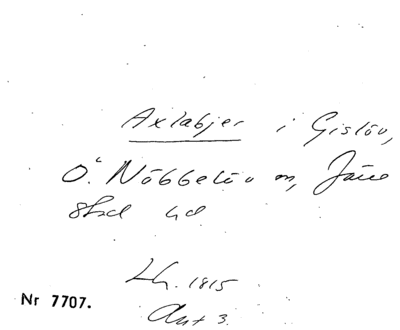 Axlabjer i Gislöv,
Ö. Nöbbelöv sn, Järre
hd
Lh. 1815
Akt 3.
Nr 7707.